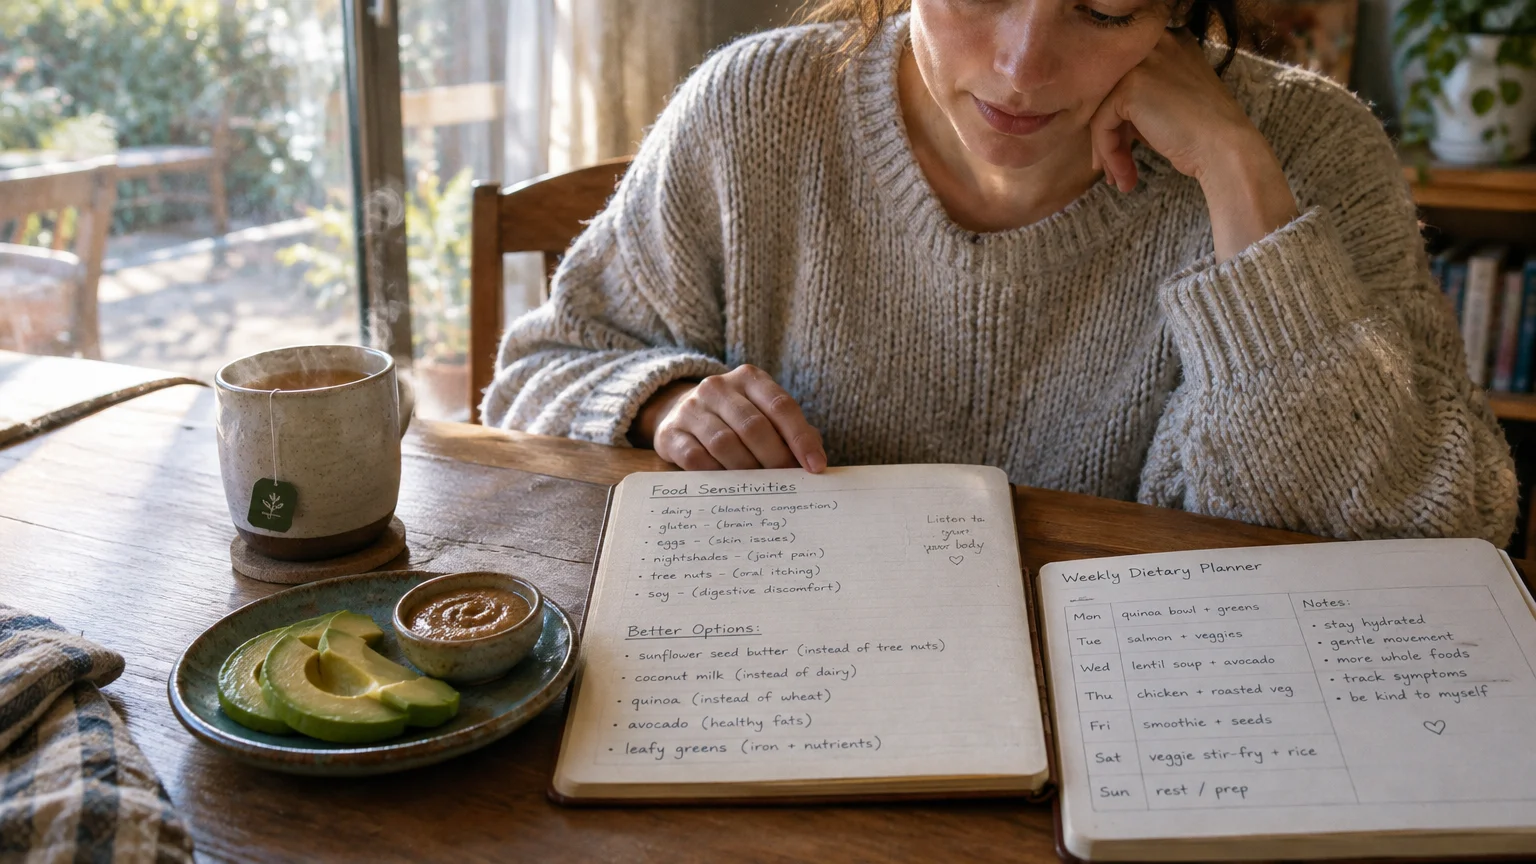 Food Sensitivities
• dairy – (bloating, congestion)
• gluten – (brain fog)
• eggs – (skin issues)
• nightshades – (joint pain)
• tree nuts – (oral itching)
• soy – (digestive discomfort)
Listen to
your
your body
♡
Better Options:
• sunflower seed butter (instead of tree nuts)
• coconut milk (instead of dairy)
• quinoa (instead of wheat)
• avocado (healthy fats)
• leafy greens (iron + nutrients)
Weekly Dietary Planner
Mon quinoa bowl + greens
Tue salmon + veggies
Wed lentil soup + avocado
Thu chicken + roasted veg
Fri smoothie + seeds
Sat veggie stir-fry + rice
Sun rest / prep
Notes:
• stay hydrated
• gentle movement
• more whole foods
• track symptoms
• be kind to myself
♡